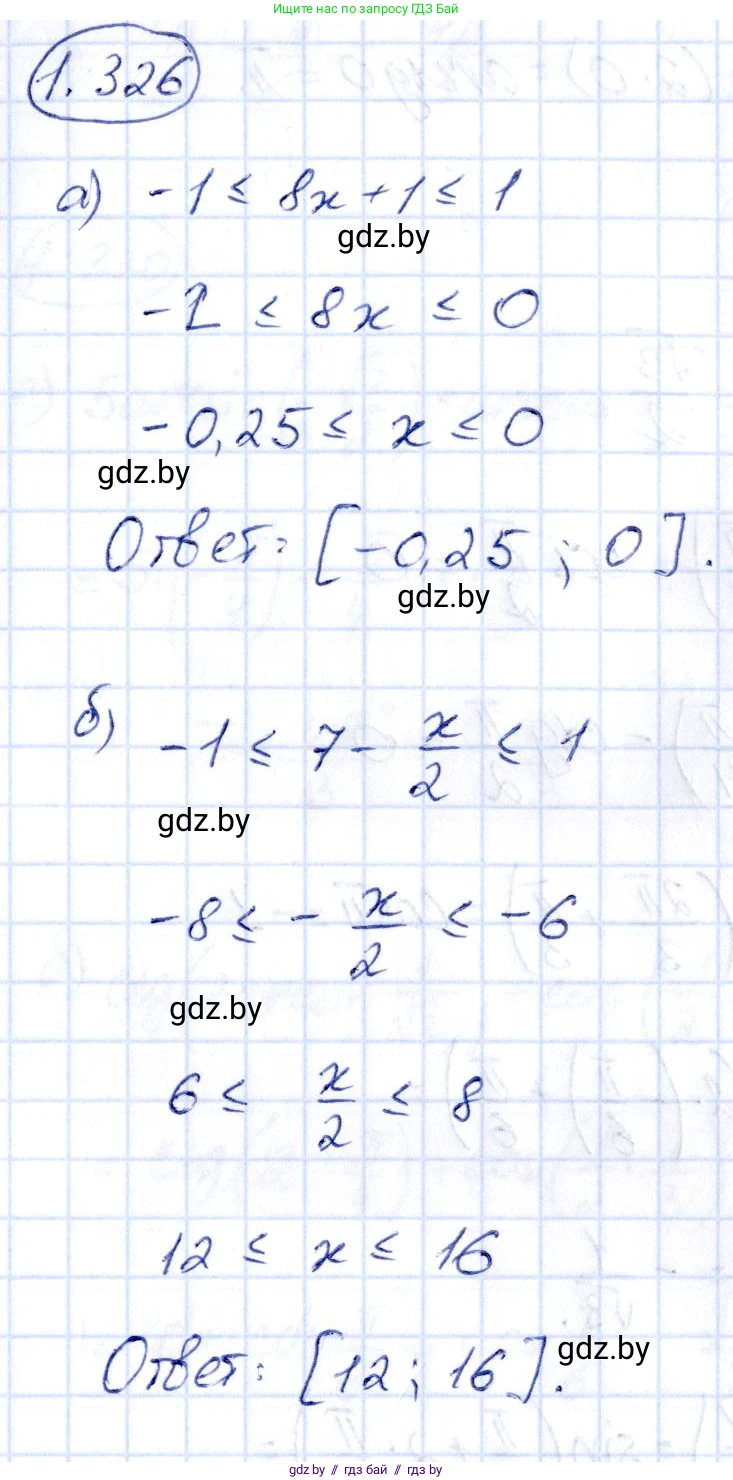 Ищите нас по запросу ГДЗ Бай
1.326
а) -1 ≤ 8x + 1 ≤ 1
gdz.by
-2 ≤ 8x ≤ 0
-0,25 ≤ x ≤ 0
gdz.by
Ответ: [-0,25 ; 0].
gdz.by
б) -1 ≤ 7 - x/2 ≤ 1
gdz.by
-8 ≤ - x/2 ≤ -6
gdz.by
6 ≤ x/2 ≤ 8
12 ≤ x ≤ 16
Ответ: [12 ; 16].
gdz.by
gdz by // гдз бай // гдз by